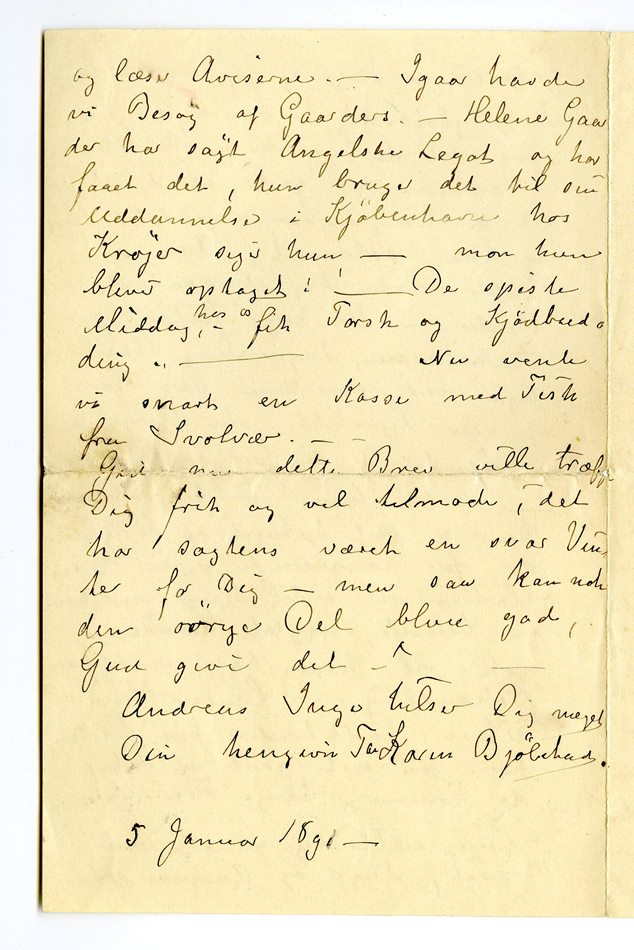 og læser Aviserne. — Igaar havde
vi Besøg af Gaarders. — Helene Gaar
der har søgt Angelske Legat og har
faaet det, hun bruge det til sin
Uddannelse i Kjöbenhavn hos
Krøjer siger hun — mon hun
bliver optaget! ! — De spiste
Middag, hos os – fik Torsk og Kjödbud
ding .. — Nu vente
vi snart en Kasse med Fisk
fra Svolvær. — —
Gid nu dette Brev ville træffe
Dig frisk og vel tilmode, – det
har sagtens været en svær Vin
ter for Dig — men saa kan nok
den øvrige Del blive god,
Gud give det – —
Andreas Inge hilser Dig meget
Din hengivne Karen Bjölstad.
5 Januar 1891 —